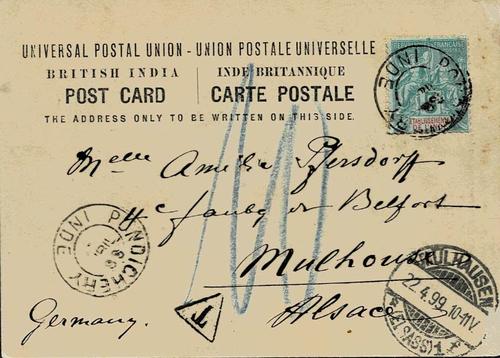 UNIVERSAL POSTAL UNION - UNION POSTALE UNIVERSELLE
BRITISH INDIA
INDE BRITANNIQUE
POST CARD
CARTE POSTALE
THE ADDRESS ONLY TO BE WRITTEN ON THIS SIDE.
RÉPUBLIQUE FRANÇAISE
Melle Amelia Pfersdorff
faubg de Belfort
Mulhouse
Alsace
Germany.
PONDICHERY INDE
T
MÜLHAUSEN
22.4.99.10-11V.
(ELSASS) 1